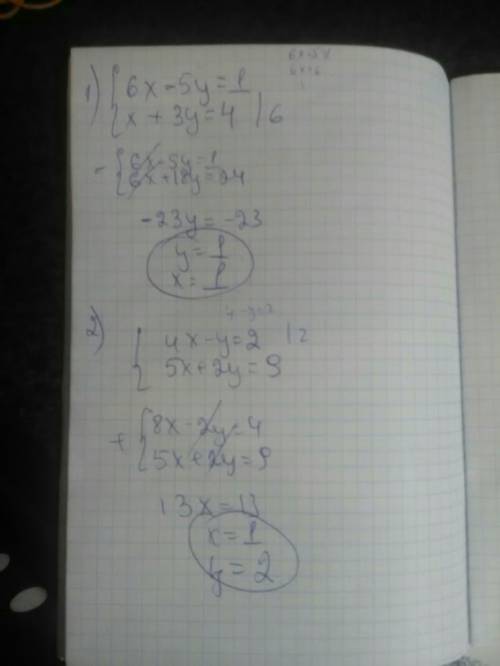 1) { 6x - 5y = 1
{ x + 3y = 4 | 6
- { 6x - 5y = 1
{ 6x + 18y = 24
-23y = -23
y = 1
x = 1
2)
{ 4x - y = 2 | 2
{ 5x + 2y = 9
+ { 8x - 2y = 4
{ 5x + 2y = 9
13x = 13
x = 1
y = 2